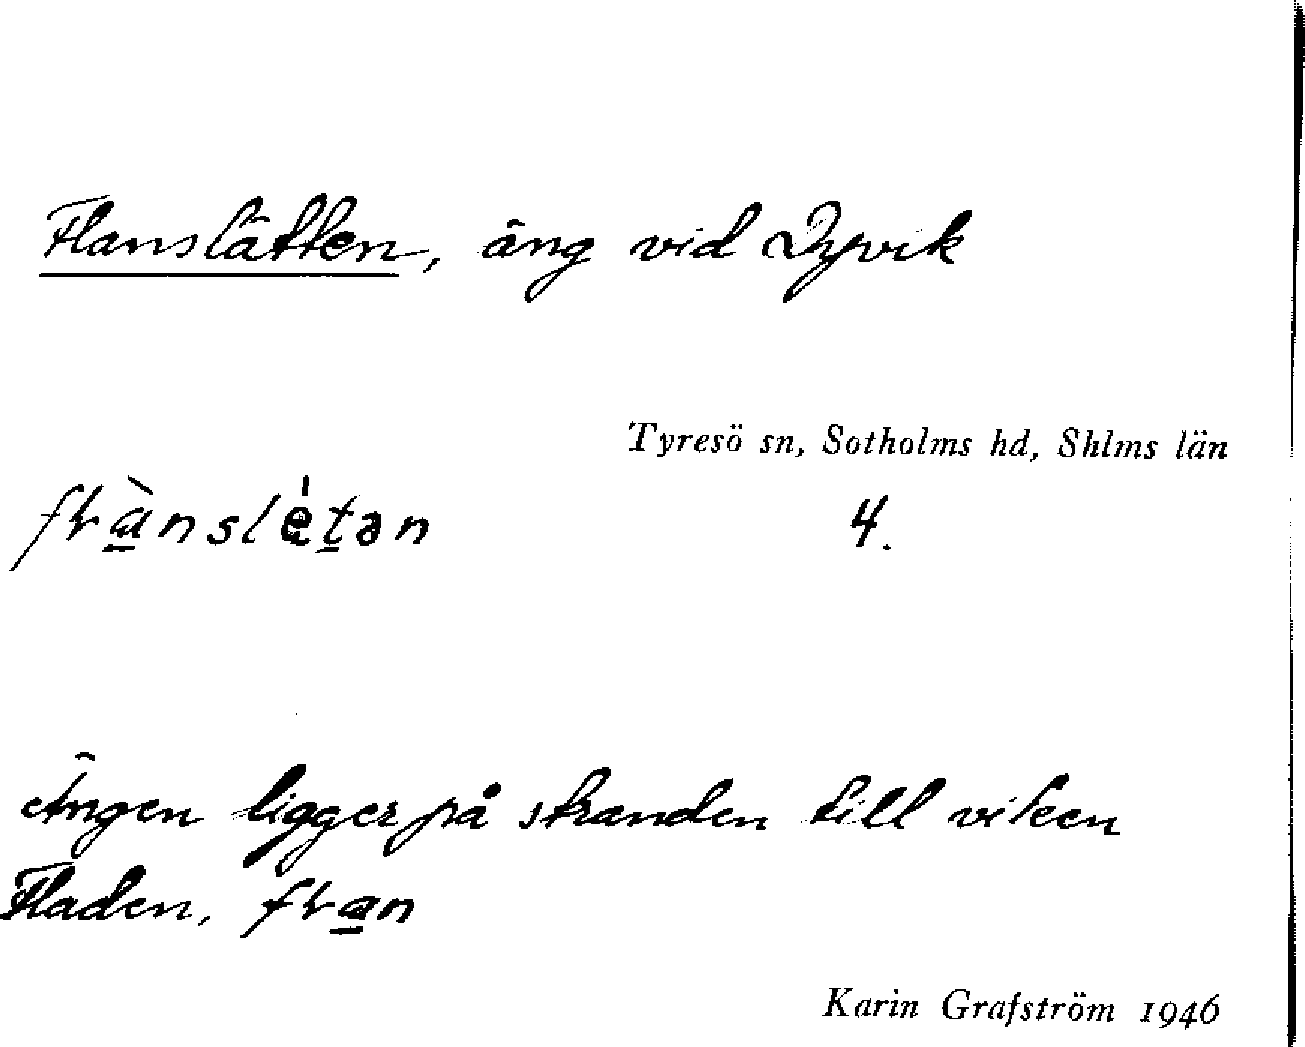 Flanslätten, äng vid Dyvik
Tyresö sn, Sotholms hd, Shlms län
4.
Ängen ligger på stranden till viken
Fladen,
Karin Grafström 1946